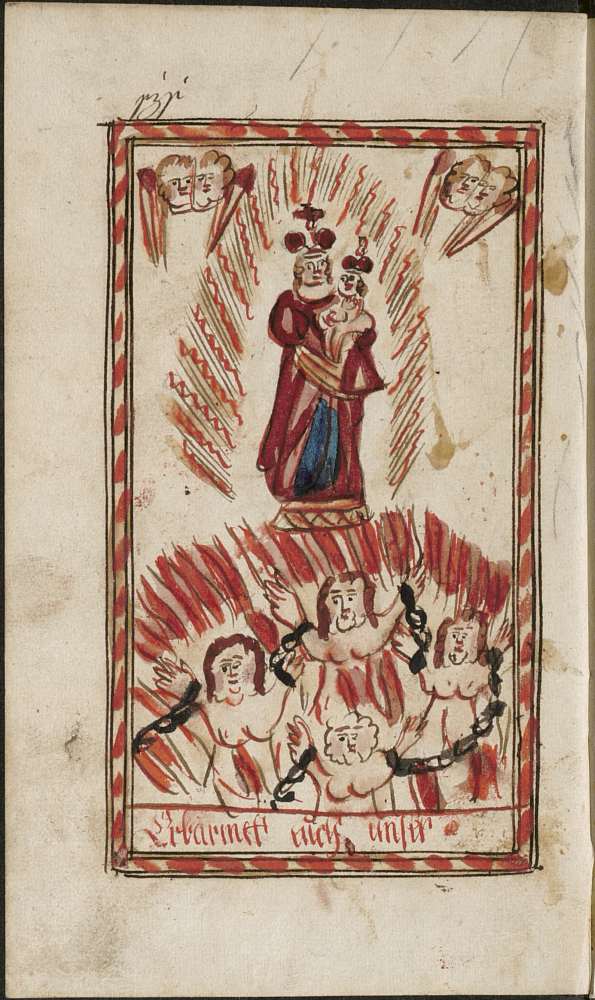 Erbarmet eüch unser